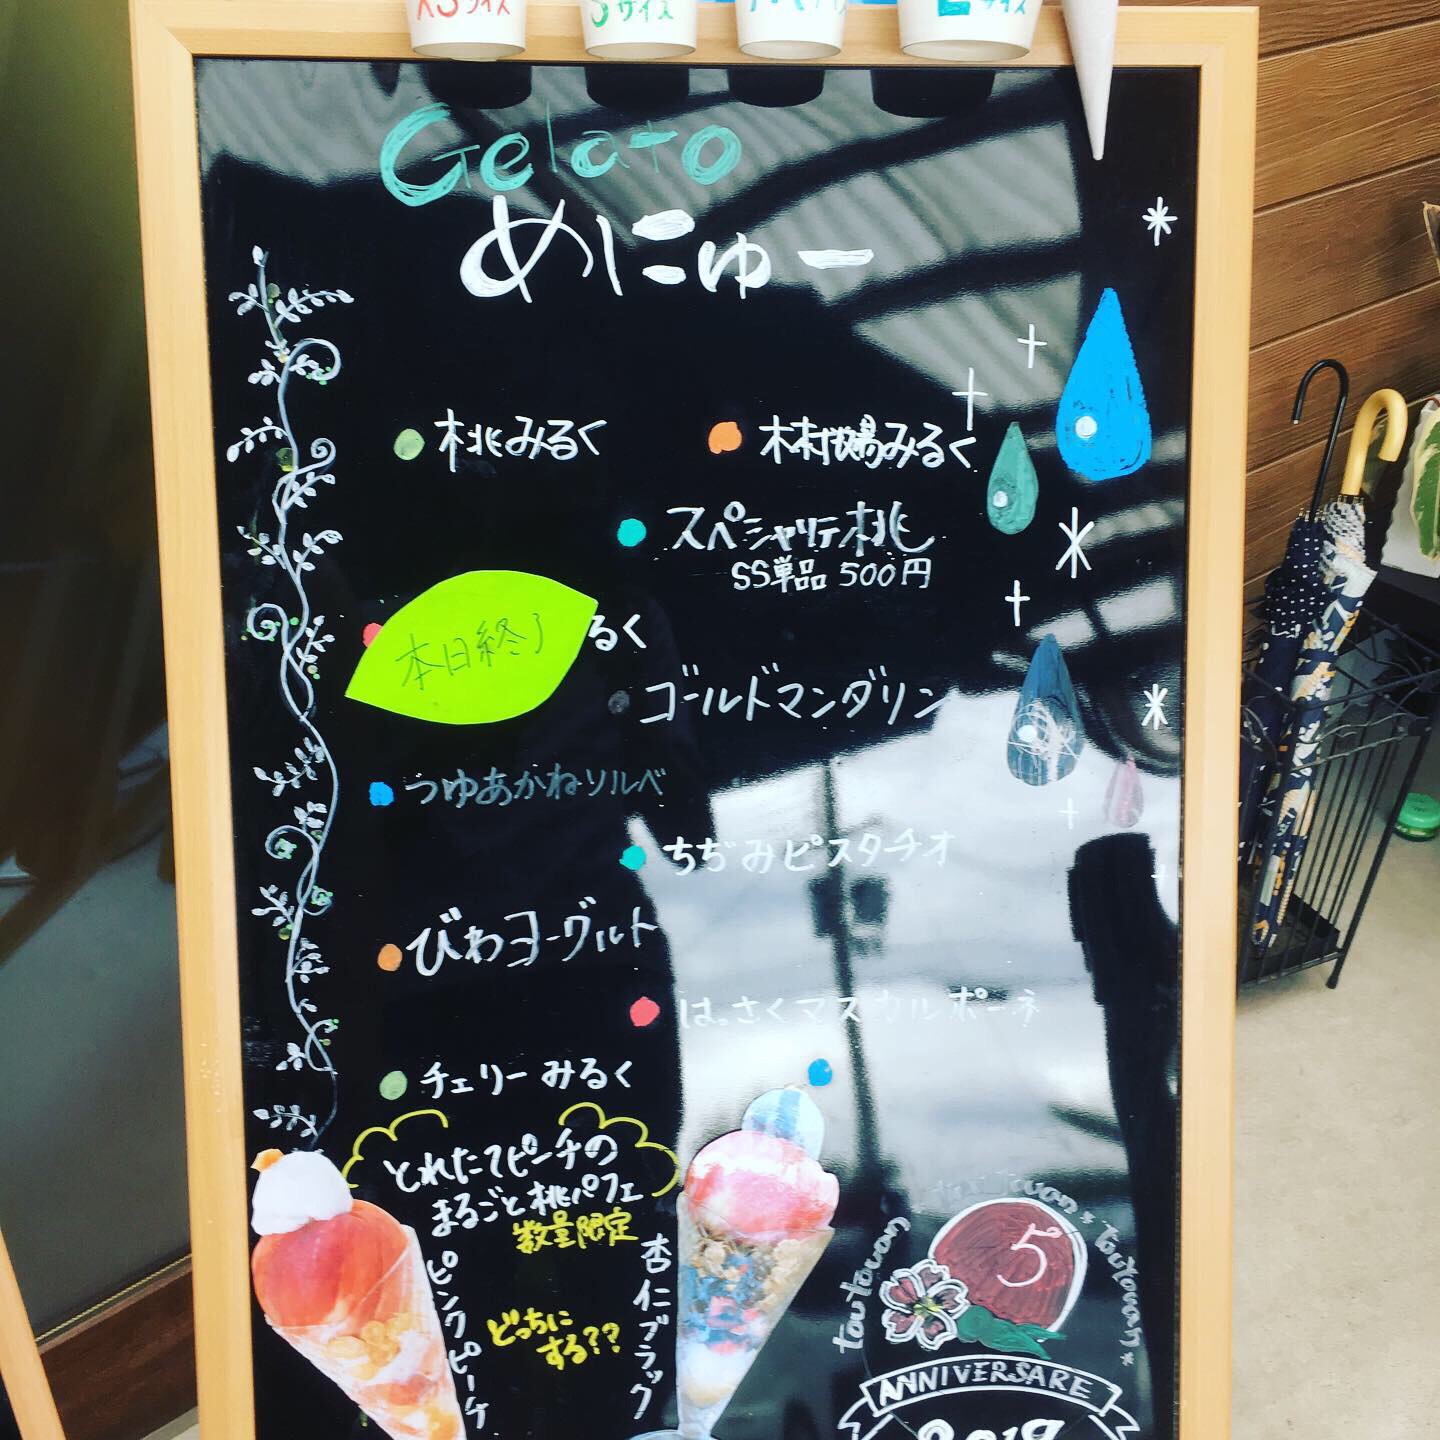 XSサイズ
Sサイズ
Lサイズ
Gelato
めにゅー
桃みるく
木村牧場みるく
スペシャリテ桃
SS単品 500円
本日終了
るく
ゴールドマンダリン
つゆあかねソルベ
ちぢみピスタチオ
びわヨーグルト
はっさくマスカルポーネ
チェリーみるく
とれたてピーチの
まるごと桃パフェ
数量限定
ピンクピーチ
どっちに
する??
杏仁ブラック
toutouan
toutouan*
5
ANNIVERSARE
2019